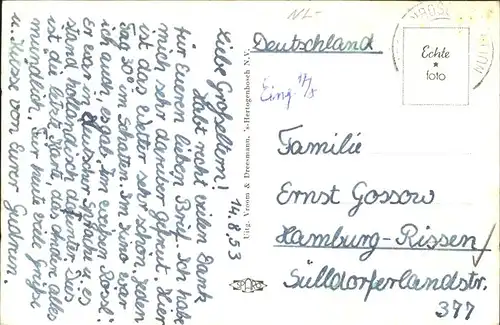 NL-
Deutschland
Echte
foto
Eing. 17/8
Liebe Großeltern! 14.8.53
Habt recht vielen Dank
für Eueren lieben Brief. Ich habe
mich sehr darüber gefreut. Hier
ist das Wetter sehr schön, jeden
Tag 30° im Schatten. Im Kino war
ich auch, es gab: Im weißen Rössl.
Er war in deutscher Sprache u. es
stand holländisch darunter. Dies
ist die letzte Karte, das andere alles
mündlich. Für heute viele Grüße
u. Küsse von Eurer Gudrun.
Uitg. Vroom & Dreesmann, 's-Hertogenbosch N.V.
Familie
Ernst Gossow
Hamburg-Rissen
Sülldorferlandstr.
377